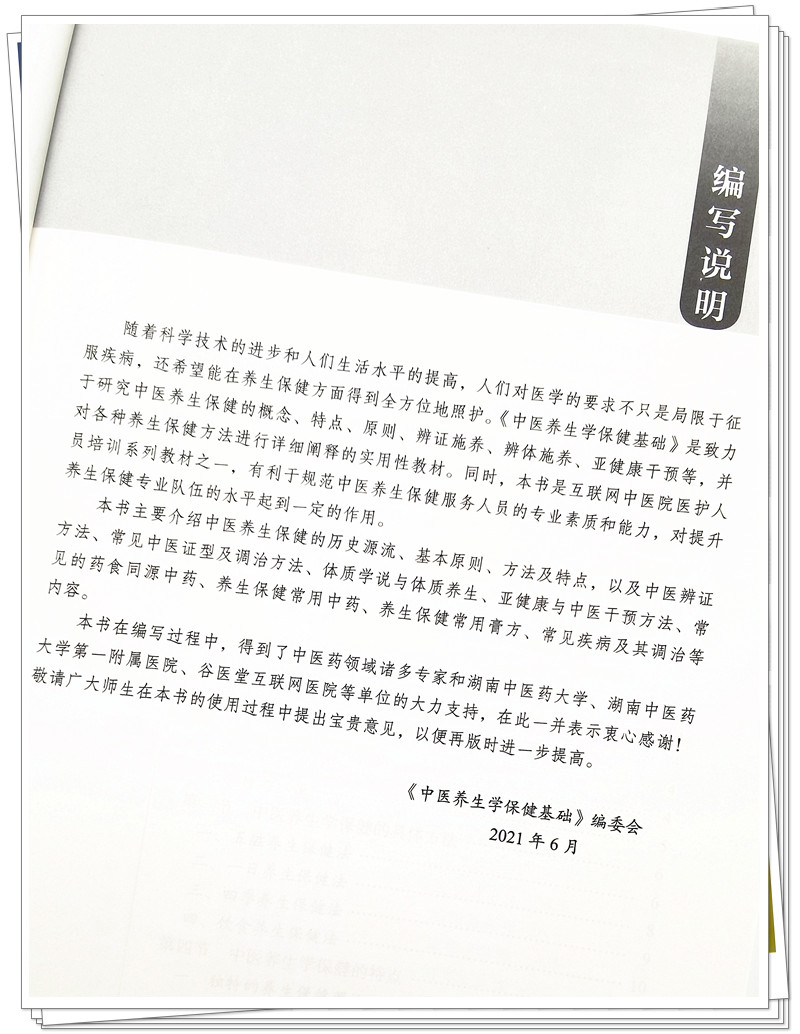 编写说明
随着科学技术的进步和人们生活水平的提高，人们对医学的要求不只是局限于征
服疾病，还希望能在养生保健方面得到全方位地照护。《中医养生学保健基础》是致力
于研究中医养生保健的概念、特点、原则、辨证施养、辨体施养、亚健康干预等，并
对各种养生保健方法进行详细阐释的实用性教材。同时，本书是互联网中医院医护人
员培训系列教材之一，有利于规范中医养生保健服务人员的专业素质和能力，对提升
养生保健专业队伍的水平起到一定的作用。
本书主要介绍中医养生保健的历史源流、基本原则、方法及特点，以及中医辨证
方法、常见中医证型及调治方法、体质学说与体质养生、亚健康与中医干预方法、常
见的药食同源中药、养生保健常用中药、养生保健常用膏方、常见疾病及其调治等
内容。
本书在编写过程中，得到了中医药领域诸多专家和湖南中医药大学、湖南中医药
大学第一附属医院、谷医堂互联网医院等单位的大力支持，在此一并表示衷心感谢！
敬请广大师生在本书的使用过程中提出宝贵意见，以便再版时进一步提高。
《中医养生学保健基础》编委会
2021年6月